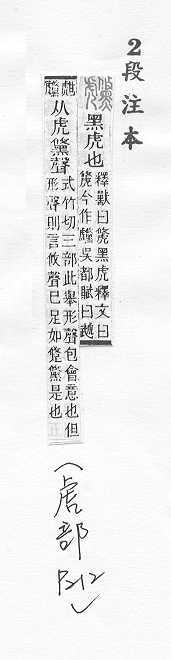 2段注本
虪 黑虎也 釋獸曰虪黑虎釋文曰
虪今作吳都賦曰甝
虪从虎儵聲 式竹切三部此舉形聲包會意也但
形聲則言攸聲已足如是也
(虎部
P212